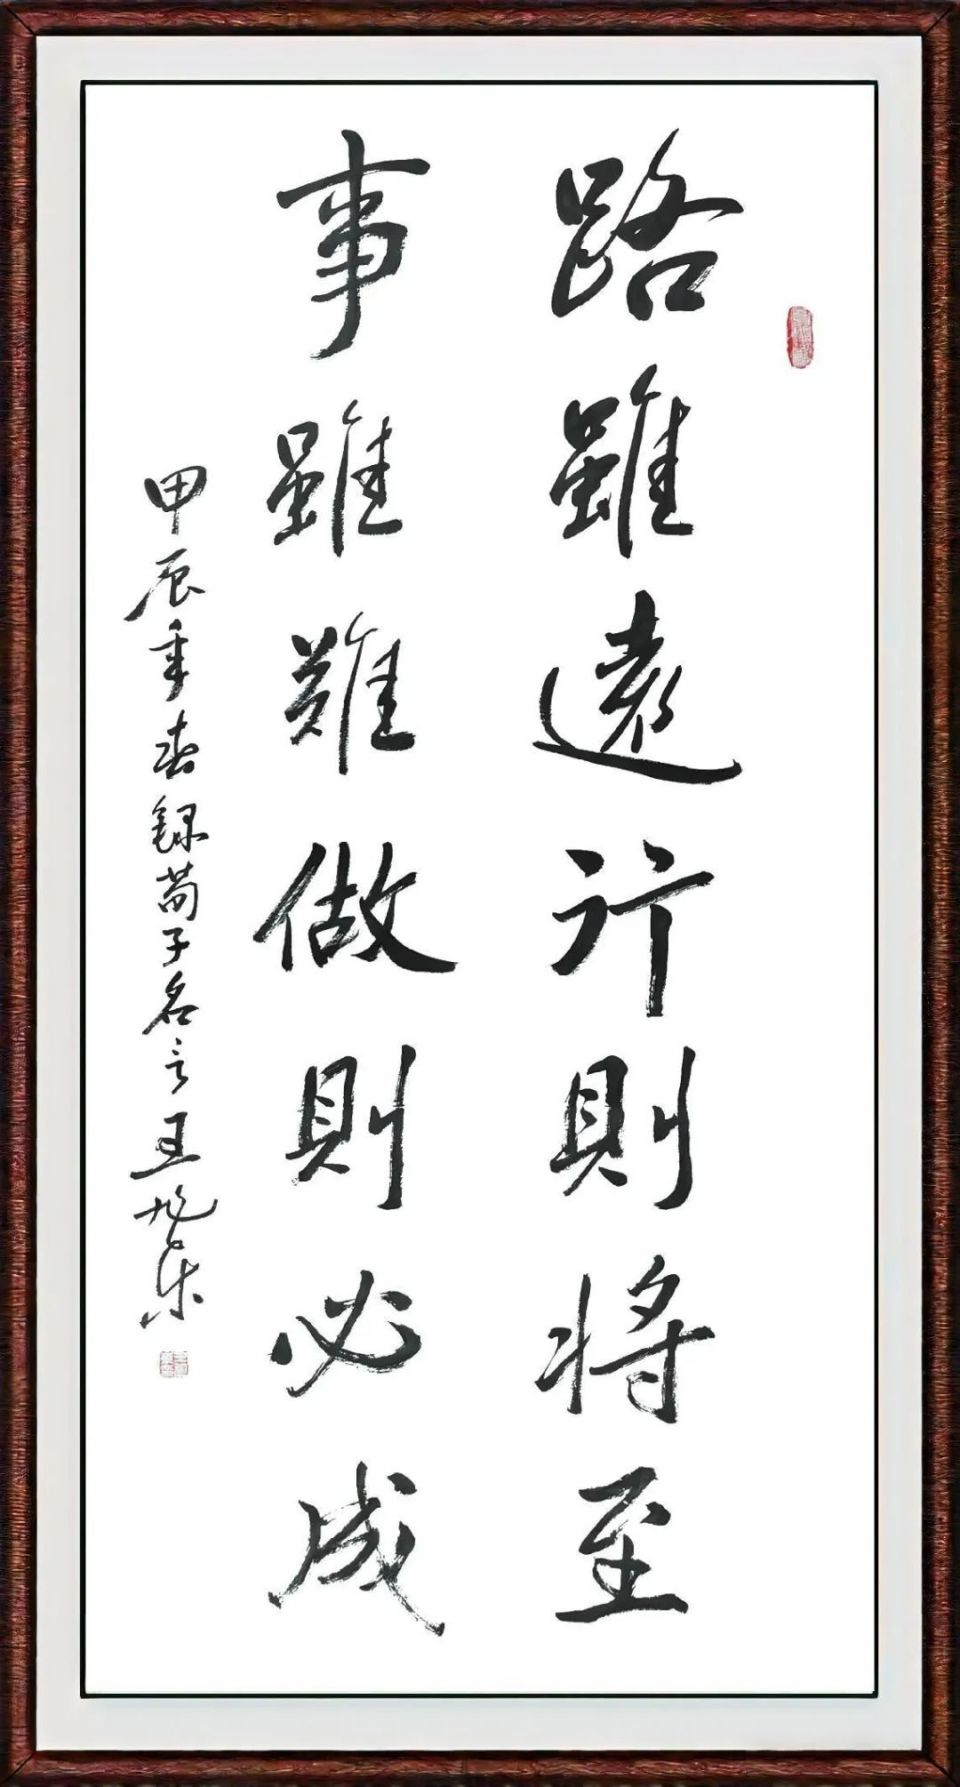 路雖遠行則將至
事雖難做則必成
甲辰年春録荀子名言王旭东